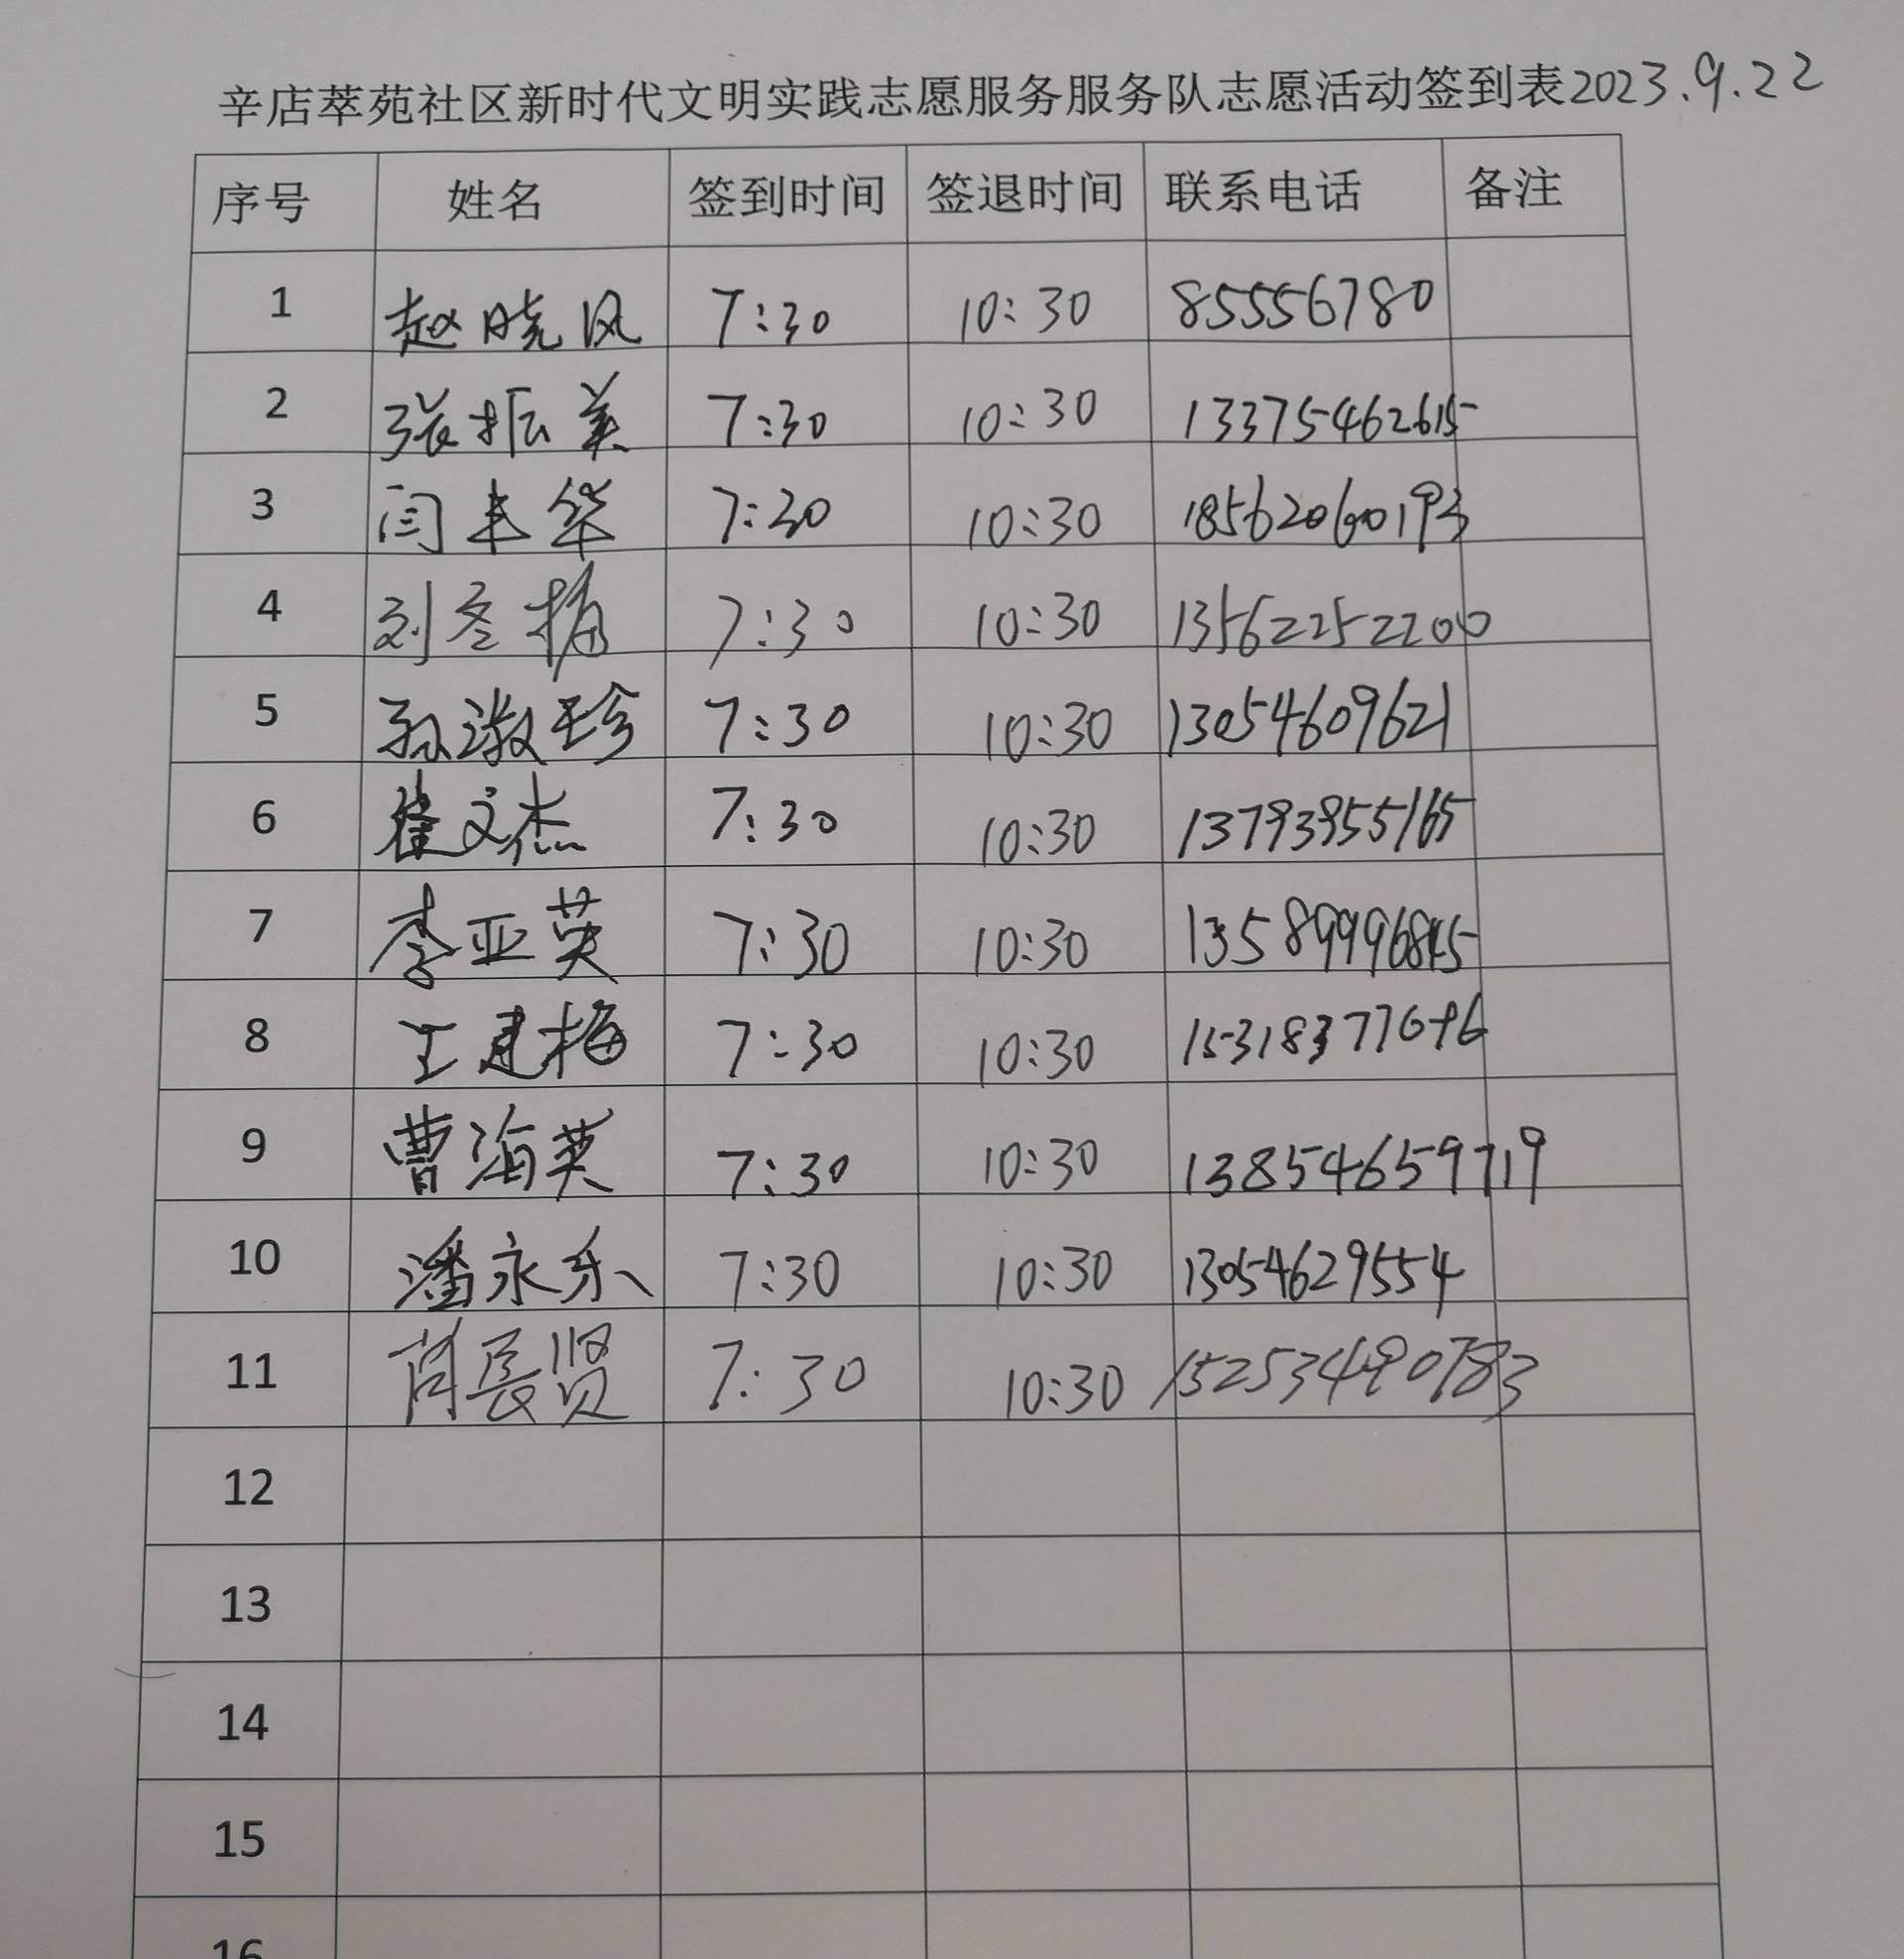 辛店萃苑社区新时代文明实践志愿服务服务队志愿活动签到表2023.9.22
序号 姓名 签到时间 签退时间 联系电话 备注
1 赵晓风 7:30 10:30 85556780
2 张振美 7:30 10:30 13375462615
3 闫丰华 7:30 10:30 18562060193
4 刘冬梅 7:30 10:30 13562252200
5 孙淑珍 7:30 10:30 13054609621
6 崔文杰 7:30 10:30 13793955165
7 李亚英 7:30 10:30
8 王建梅 7:30 10:30
9 曹海英 7:30 10:30 13854659719
10 潘永乐 7:30 10:30 13054629554
11 肖长贤 7:30 10:30 15253490783
12
13
14
15
16